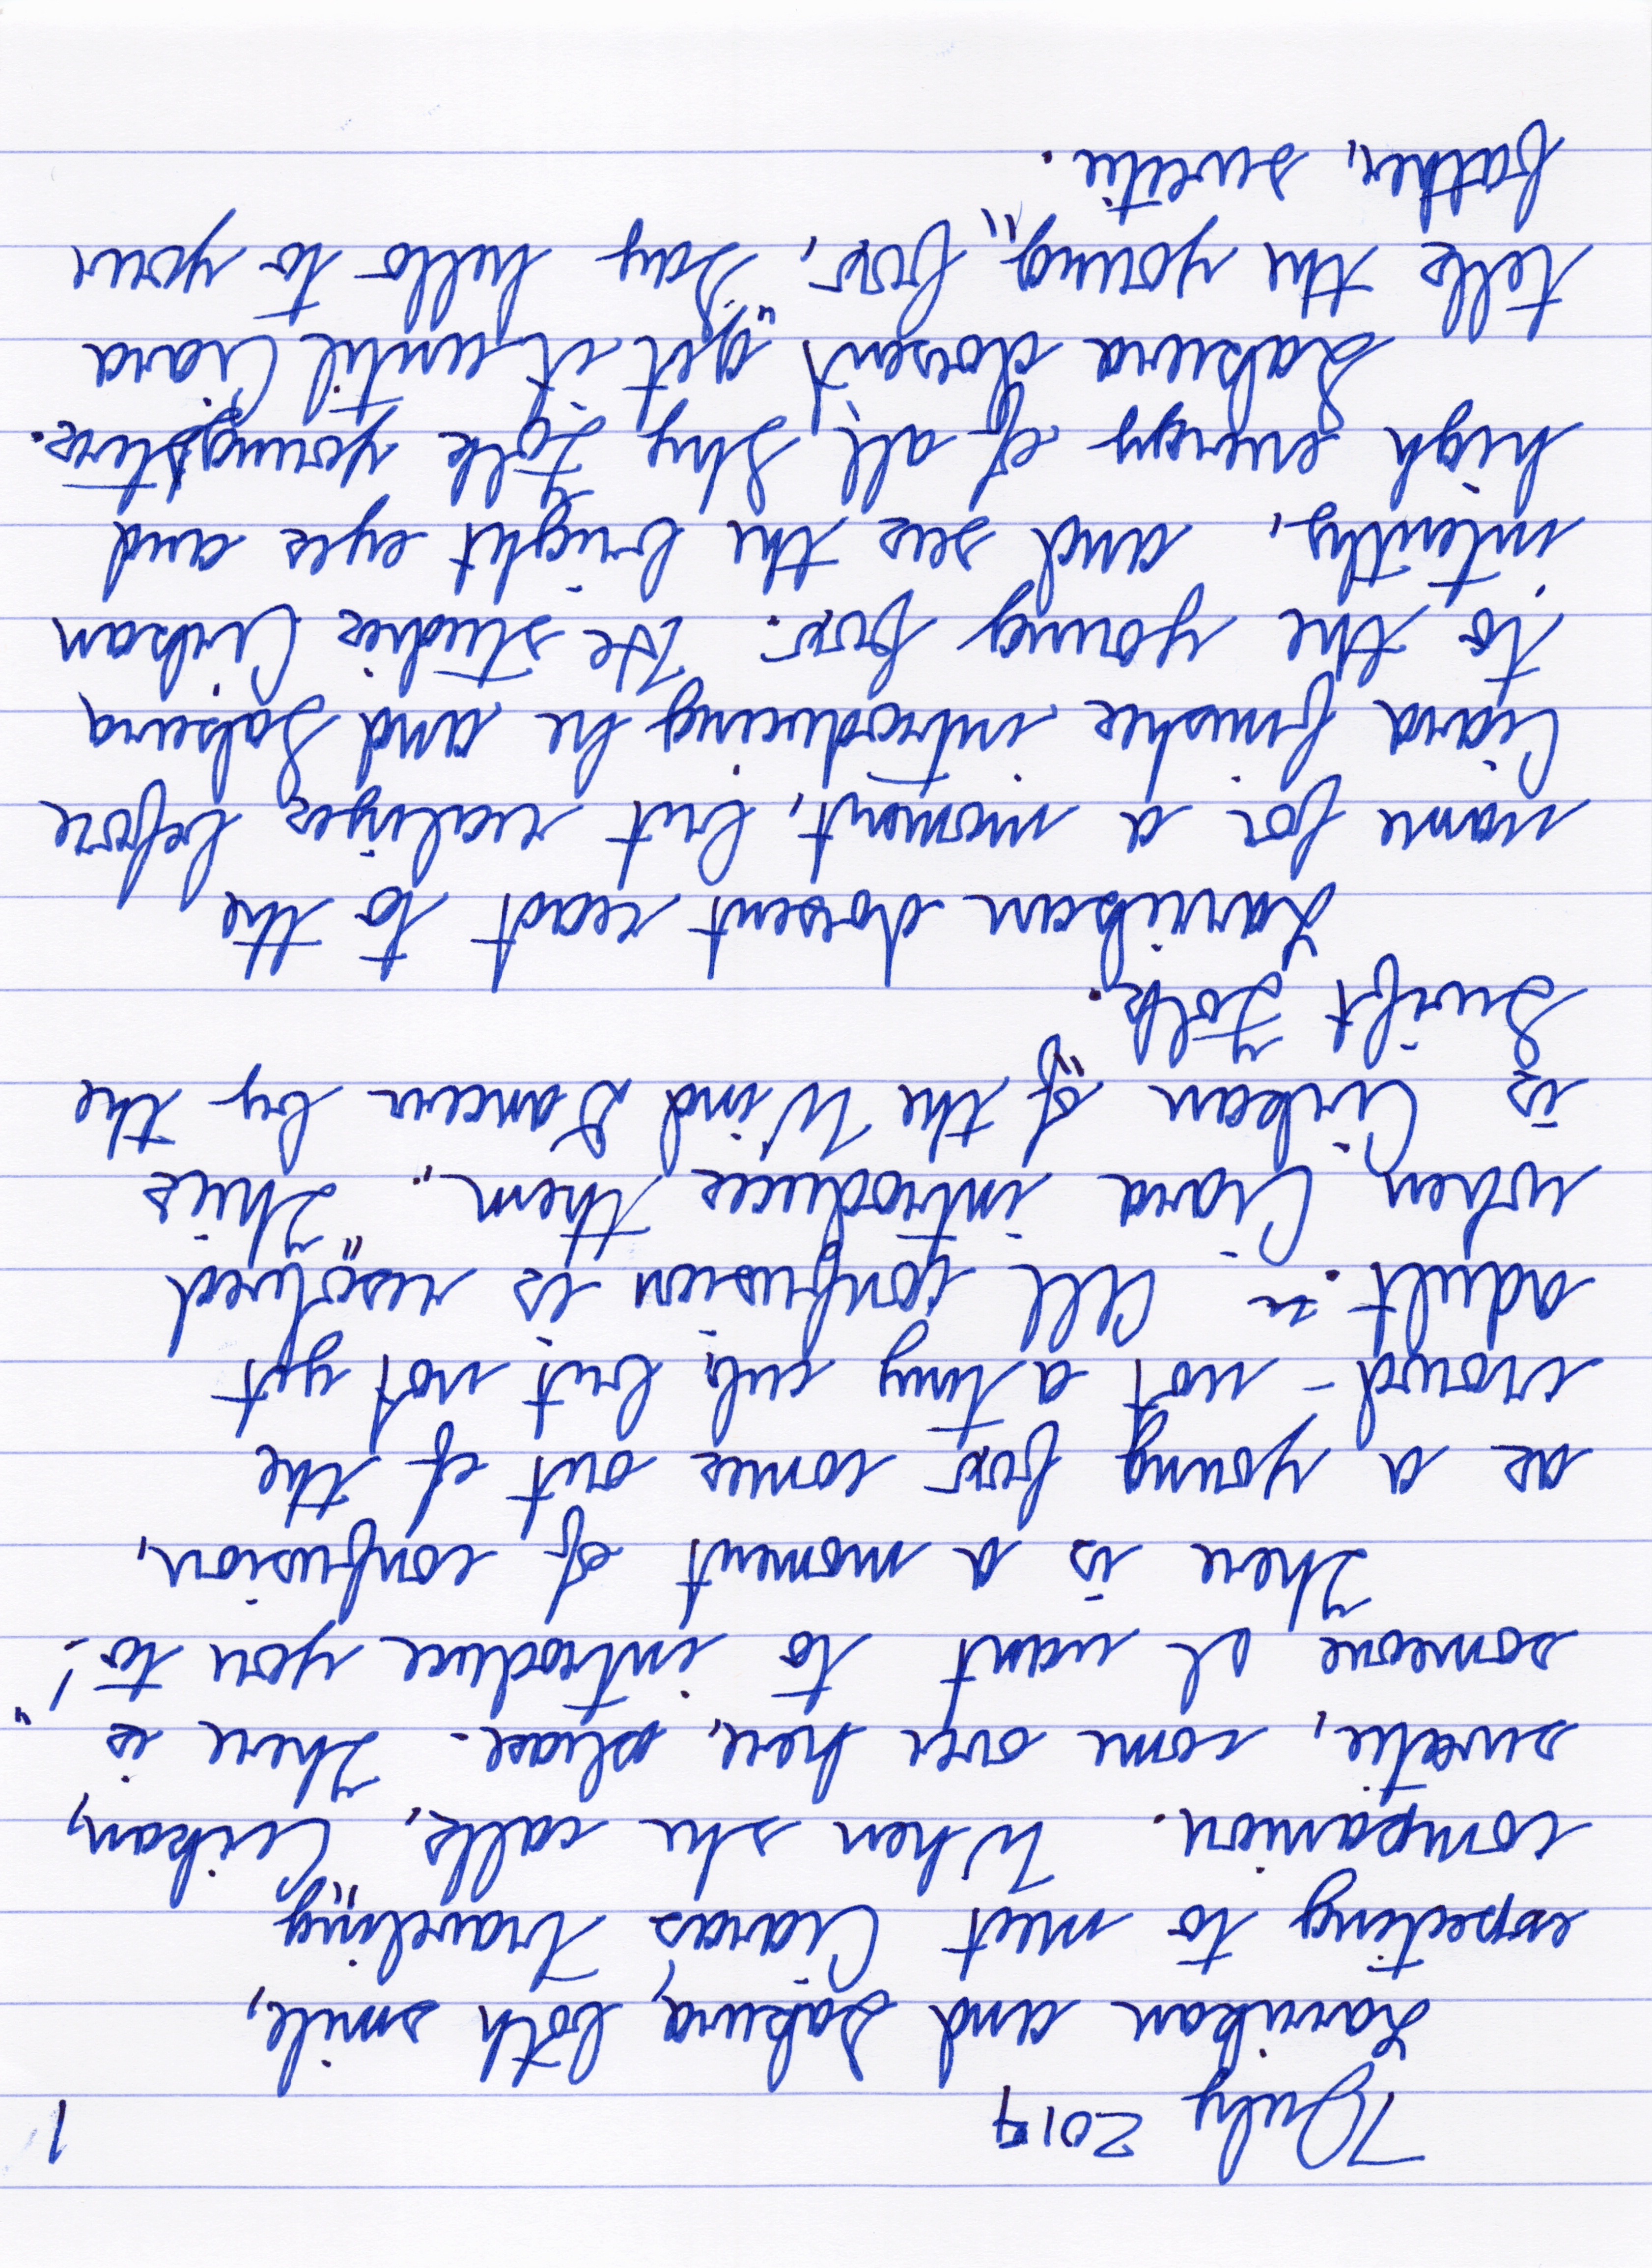 7 July 2019 1
Larrikan and Sakura both smile,
expecting to meet Ciara's traveling
companion. When she calls, "Cirikan,
sweetie, come over here, please. There is
someone I want to introduce you to!"
There is a moment of confusion,
as a young fox comes out of the
crowd - not a tiny cub, but not yet
adult. All confusion is resolved
when Ciara introduces them. "This
is Cirikan of the Wind Dancers by the
Swift Folk."
Larrikan dosent react to the
name for a moment, but realizes before
Ciara finishes introducing he and Sakura
to the young fox. He studies Cirikan
intently, and sees the bright eyes and
high energy of all Sky Folk youngsters.
Sakura dosent get it until Ciara
tells the young fox, "Say hello to your
father, sweetie.